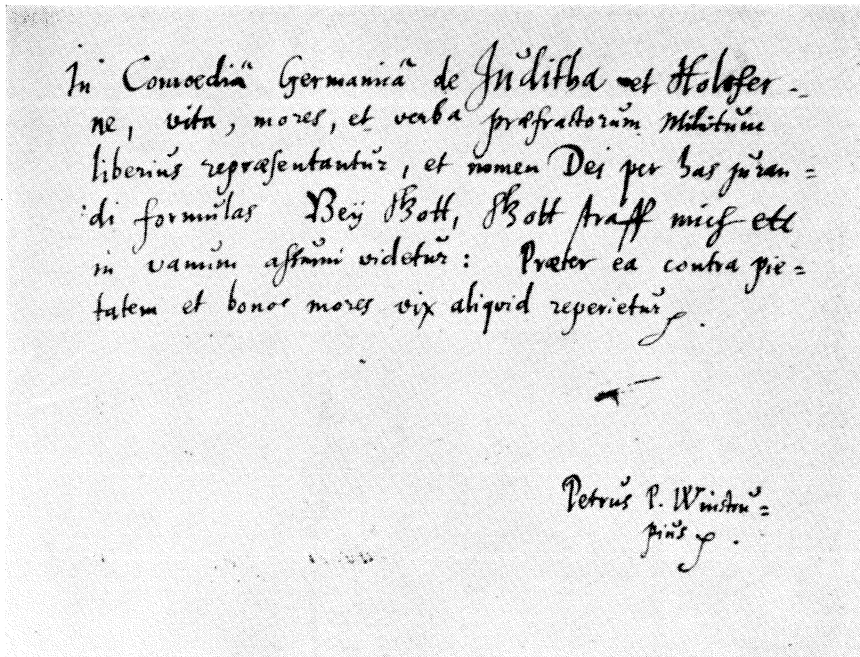 In Comoediâ Germanicâ de Juditha et Holofer-
ne, vita, mores, et verba præfractorum Militum
liberius repræsentantur, et nomen Dei per has juran=
di formulas Beÿ Gott, Gott straff mich etc
in vanum assumi videtur: Præter ea contra pie=
tatem et bonos mores vix aliqvid reperietur.
Petrus P. Winstru=
pius.